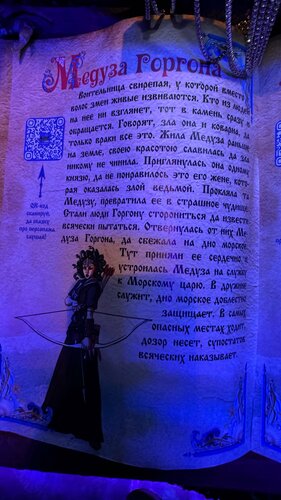 Медуза Горгона
Воительница свирепая, у которой вместо
волос змеи живые извиваются. Кто из людей
на нее ни взглянет, тот в камень сразу и
обращается. Говорят, зла она и коварна, да
только враки все это. Жила Медуза раньше
на земле, своею красотою славилась да зла
никому не чинила. Приглянулась она одному
князю, да не понравилось это его жене, кото-
рая оказалась злой ведьмой. Прокляла та
Медузу, превратила ее в страшное чудище.
Стали люди Горгону сторониться да извести
всячески пытаться. Отвернулась от них Ме-
дуза Горгона, да сбежала на дно морское.
Тут приняли ее сердечно, и
устроилась Медуза на службу
к Морскому царю. В дружине
служит, дно морское доблестно
защищает. В самых
опасных местах ходит,
дозор несет, супостатов
всяческих наказывает.
QR-код
сканируй,
да сказку
про персонажа
слушай!